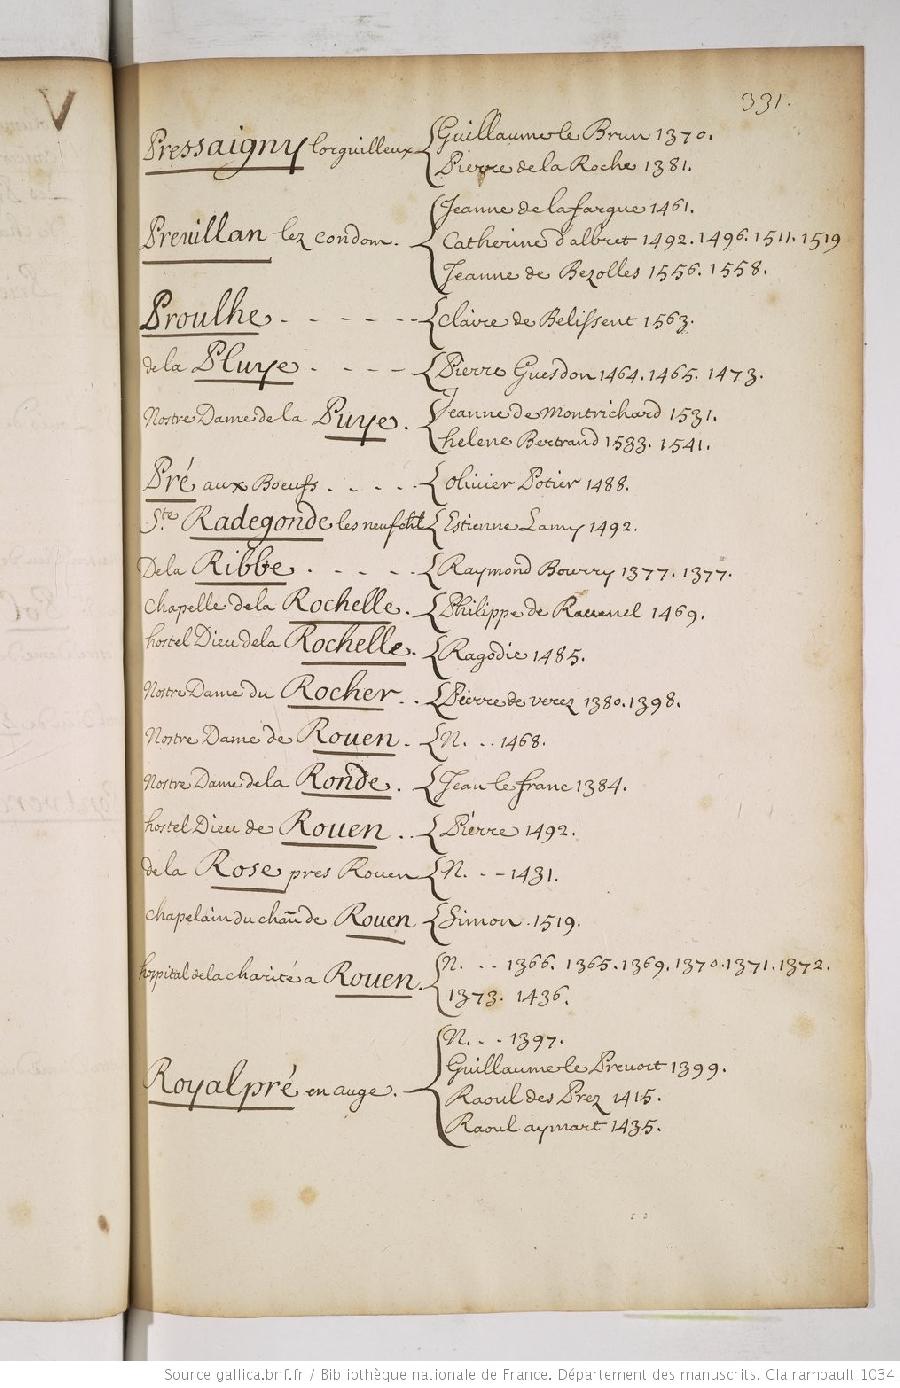 331.
Pressaigny lorguilleux { Guillaume le Brun 1370.
Pierre de la Roche 1381.
Jeanne de lafargue 1461.
Preuillan lez condom. { Catherine d'albret 1492. 1496. 1511. 1519
Jeanne de Bezolles 1556. 1558.
Proulhe - - - - - - { Claire de Belissent 1563.
de la Pluye. - - - - { Pierre Guesdon 1464. 1465. 1473.
Nostre Dame de la Puye. { Jeanne de Montrichard 1531.
helene Bertrand 1533. 1541.
Pré aux Boeufs . . . . . { Olivier Potier 1488.
Ste. Radegonde les neufchl { Estienne Lamy 1492.
De la Ribbe . . . . . { Raymond Bourry 1377. 1377.
Chapelle de la Rochelle. { Philippe de Raueneil 1469.
hostel Dieu de la Rochelle. { Ragodie 1485.
Nostre Dame du Rocher . . { Pierre de verez 1380. 1398.
Nostre Dame de Rouen . { N. . . 1468.
Nostre Dame de la Ronde . { Jean le franc 1384.
hostel Dieu de Rouen . . { Pierre 1492.
de la Rose pres Rouen { N. - - 1431.
Chapelain du chau de Rouen { Simon . 1519.
hospital de la charité a Rouen. { N. . . . 1366. 1365. 1369. 1370. 1371. 1372.
1373. 1436.
N. . . 1397.
Guillaume le Prevost 1399.
Royalpré en auge. { Raoul des Prez 1415.
Raoul aymart 1435.
Source gallica.bnf.fr / Bibliothèque nationale de France. Département des manuscrits. Clairambault 1034